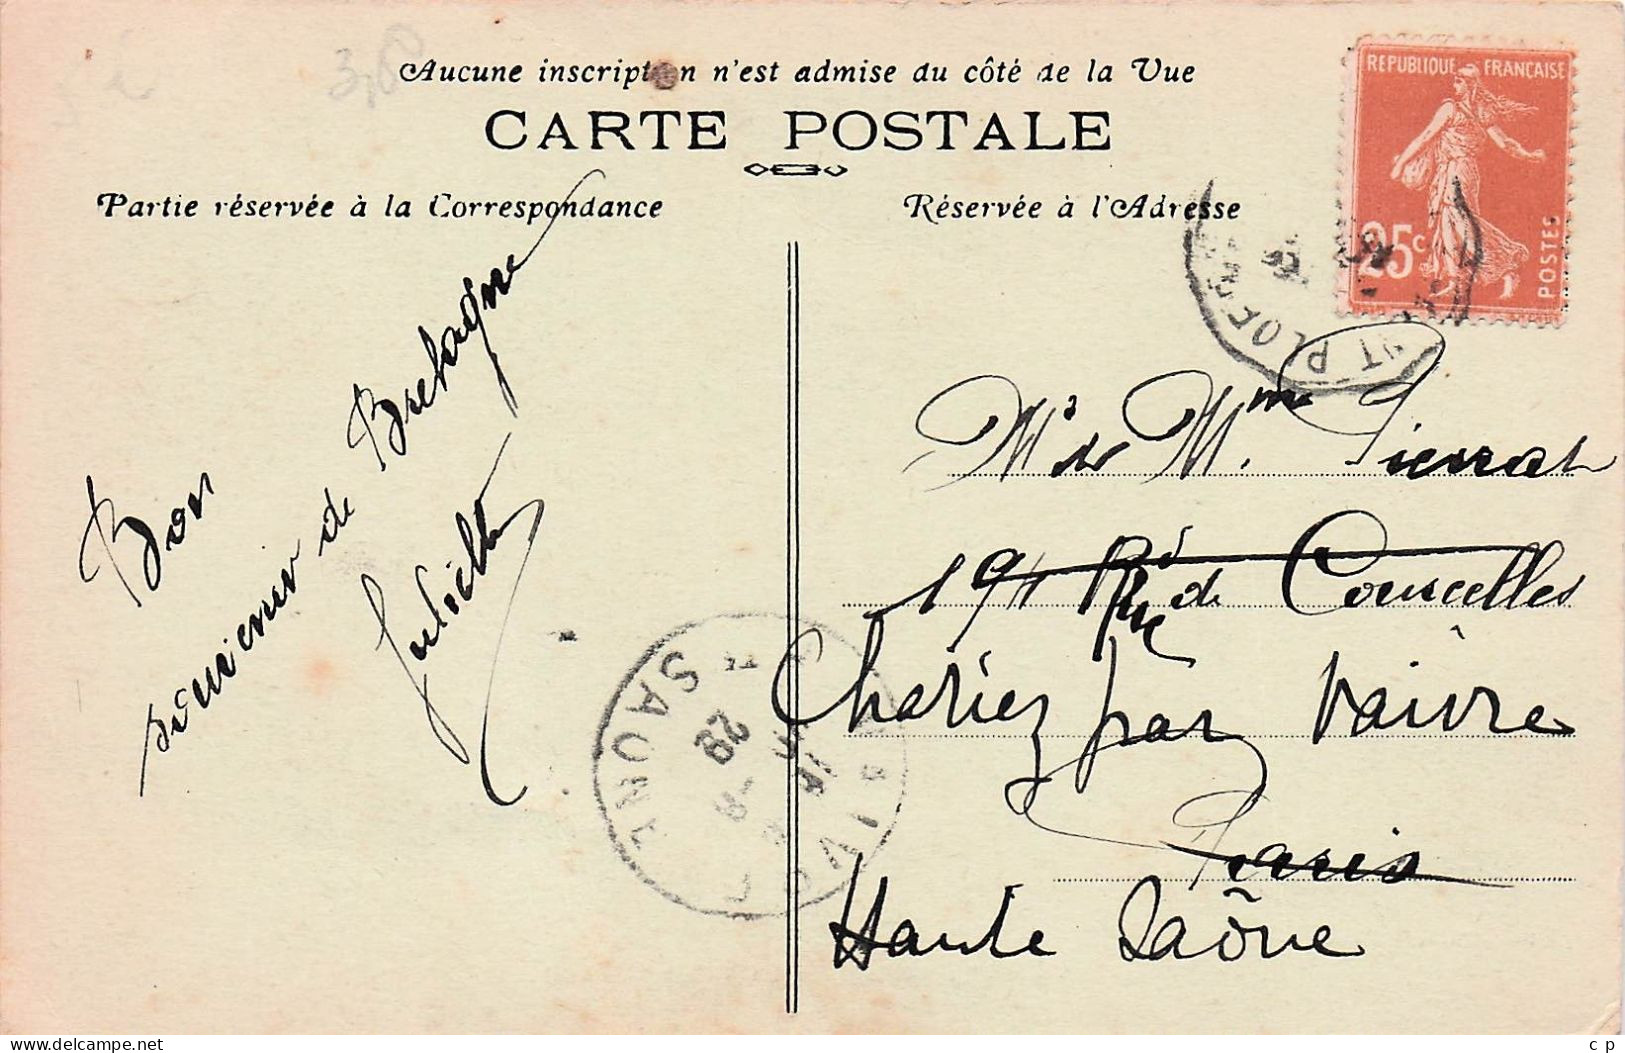 Aucune inscription n'est admise du côté de la Vue
CARTE POSTALE
Partie réservée à la Correspondance
Réservée à l'Adresse
REPUBLIQUE FRANÇAISE
25c
POSTES
PLOE
Bon
souvenir de Bretagne
Juliette
Mr de Mme Pierrat
194 Rue de Courcelles
Chariez par Vaivre
Paris
Haute Saône
SAONE
29
c p
Delcampe.net